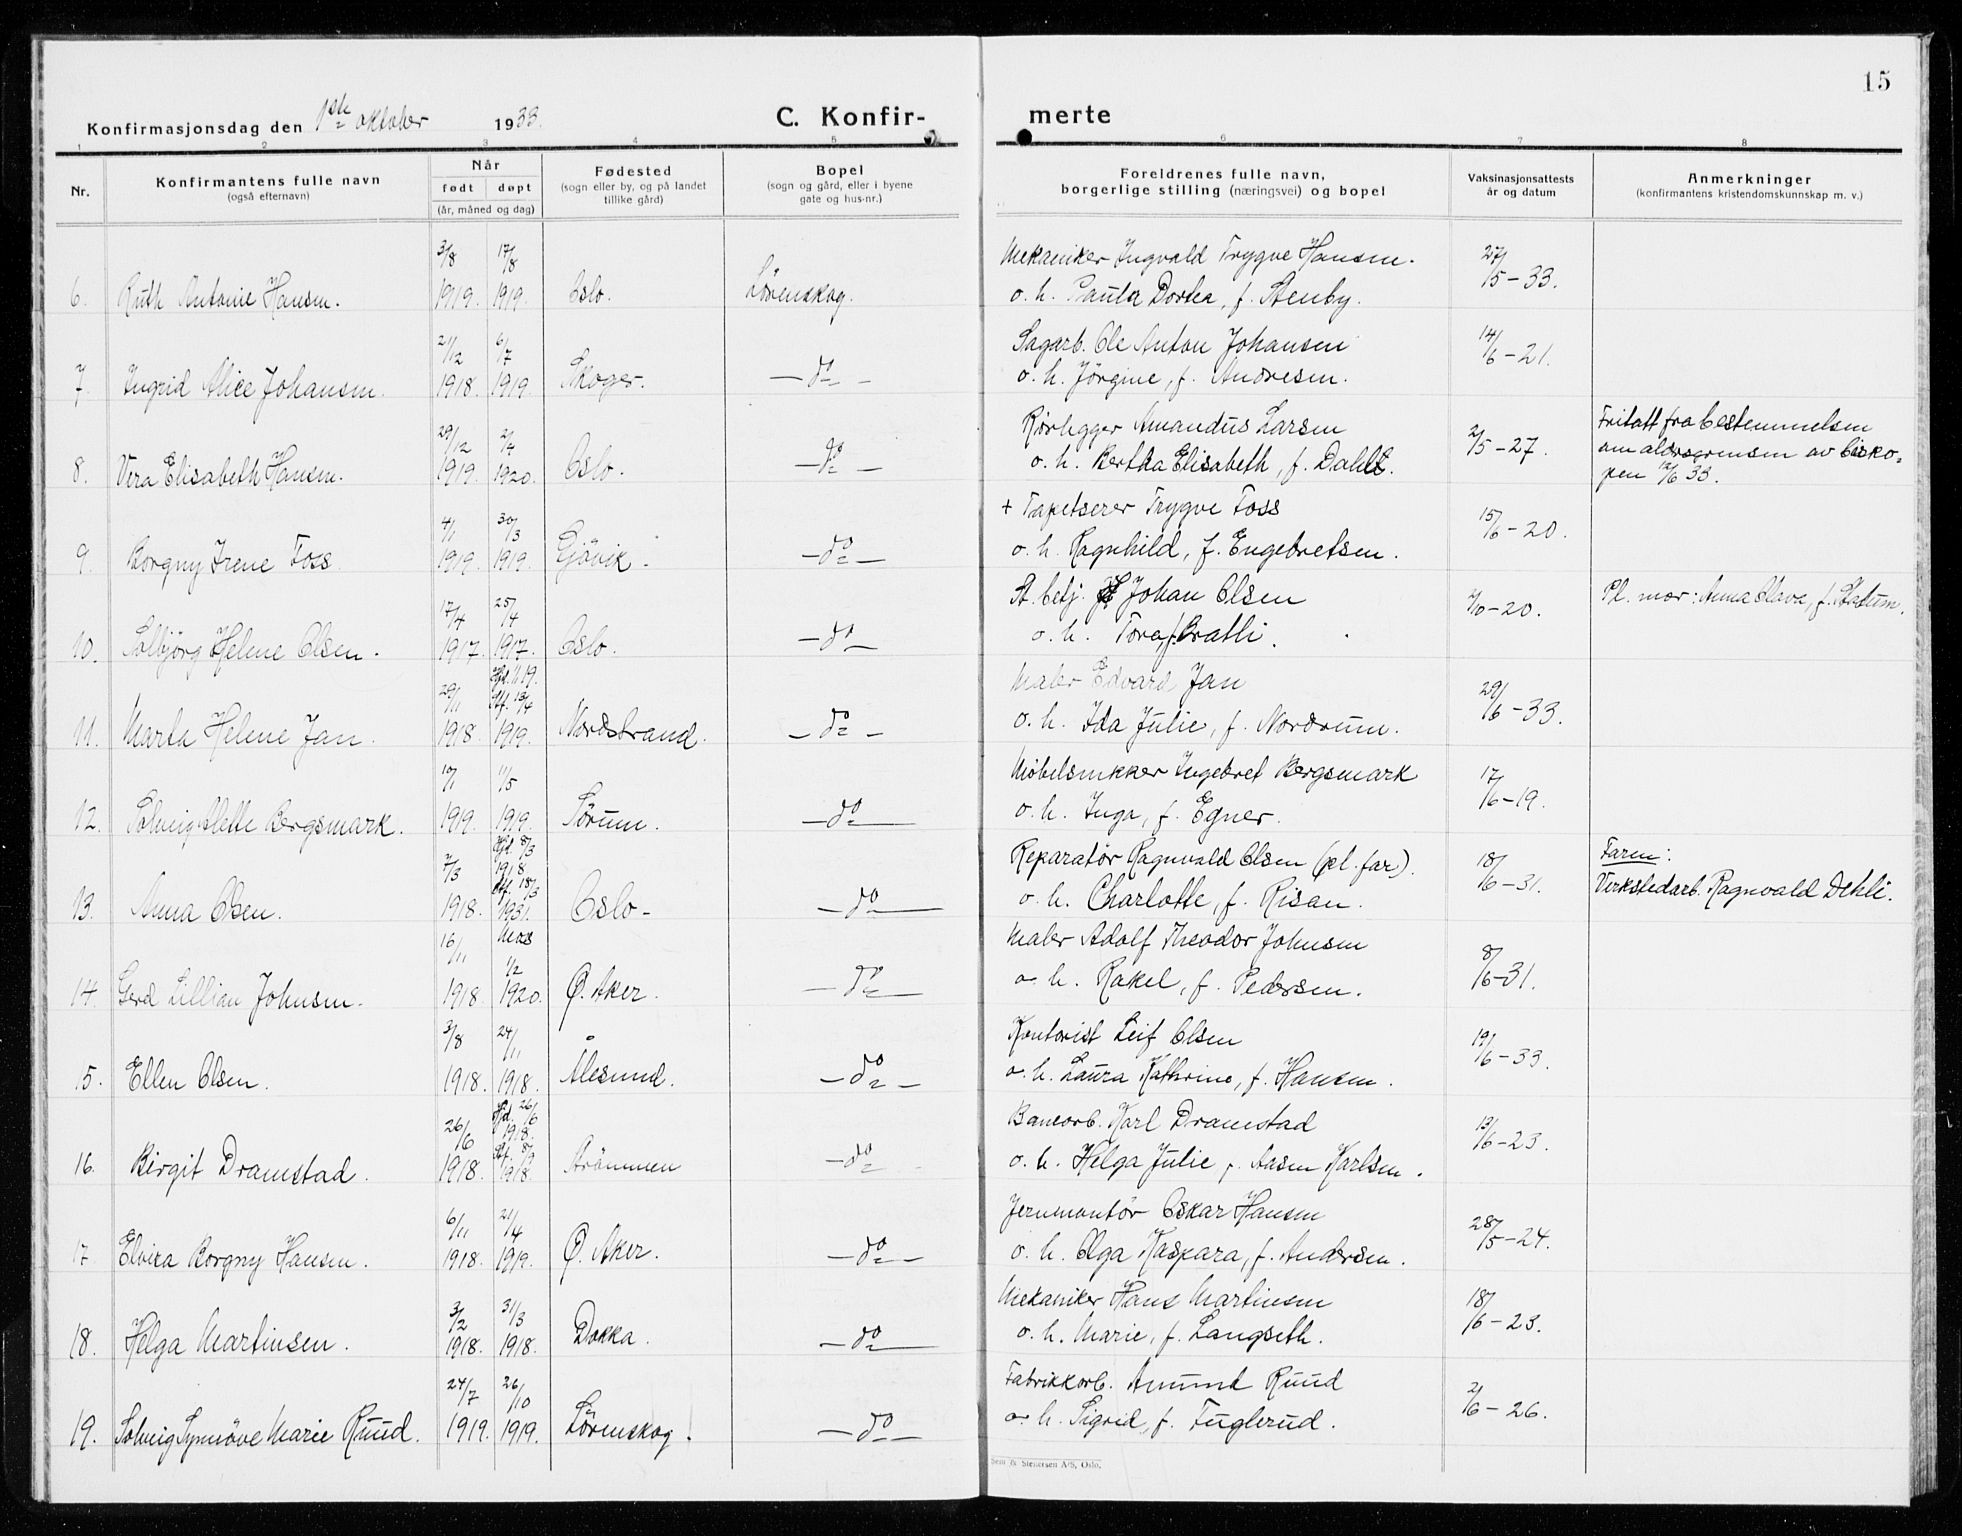 15
Konfirmasjonsdag den 1ste oktober 1933. C. Konfir- merte
1 2 3 4 5 6 7 8
Nr.
Konfirmantens fulle navn
(også efternavn)
Når
født døpt
(år, måned og dag)
Fødested
(sogn eller by, og på landet
tillike gård)
Bopel
(sogn og gård, eller i byene
gate og hus-nr.)
Foreldrenes fulle navn,
borgerlige stilling (næringsvei) og bopel
Vaksinasjonsattests
år og datum
Anmerkninger
(konfirmantens kristendomskunnskap m. v.)
3/8 17/8 Mekaniker Ingvald Trygve Hansen. 27/5-33.
6. Ruth Antonie Hansen. 1919. 1919. Oslo. Lörenskog. o. h. Paula Dortea, f. Stenby.
21/12 6/7 Sagarb. Ole Anton Johansen 14/6-21.
7. Ingrid Alice Johansen. 1918. 1919. Skoger. — do — o. h. Jörgine, f. Andresen.
29/12 2/4 Rørlegger Amandus Larsen 2/5-27. Fritatt fra bestemmelsen
8. Vera Elisabeth Hansen. 1919. 1920. Oslo. — do — o. h. Bertha Elisabeth, f. Dahl. om aldersgrensen av bisko-
pen 12/6 33.
4/1 30/3 + Tapetserer Trygve Foss 15/6-20.
9. Borgny Irene Foss. 1919. 1919. Gjövik. — do — o. h. Ragnhild, f. Engebretsen.
17/4 25/4 St. betj. Johan Olsen 2/10-20. Pl. mor: Anna Slava, f. Stadum.
10. Solbjörg Helene Olsen. 1917. 1917. Oslo. — do — o. h. Tora, f. Bratli.
Hjd. 1/1 19.
29/11 Stf. 13/4 Maler Edvard Jan 29/6-33.
11. Marta Helene Jan. 1918. 1919. Nordstrand. — do — o. h. Ida Julie, f. Nordrum.
10/1 11/5 Möbelsnekker Ingebret Bergsmark 17/6-19.
12. Solveig Alette Bergsmark. 1919. 1919. Sörum. — do — o. h. Inga, f. Egner.
Hjd. 8/3
7/3 1918. Reparatør Ragnvald Olsen (pl. far). 18/6-31. Faren:
Stf. 18/3
13. Anna Olsen. 1918. 1931. Oslo. — do — o. h. Charlotte, f. Risan. Verkstedarb. Ragnvald Dehli.
Moss
16/11 1/2 Maler Adolf Theodor Johnsen 8/6-31.
14. Gerd Lillian Johnsen. 1918. 1920. Ø. Aker. — do — o. h. Rakel, f. Pedersen.
3/8 24/11 Kontorist Leif Olsen 19/6-33.
15. Ellen Olsen. 1918. 1918. Ålesund. — do — o. h. Laura Kathrine, f. Hansen.
Hjd. 26/6
26/6 1918. Banearb. Karl Dramstad 13/6-23.
Stf. 8/9
16. Birgit Dramstad. 1918. 1918. Strömmen — do — o. h. Helga Julie, f. Aasen Karlsen.
6/11 21/4 Jernmontör Oskar Hansen 28/5-24.
17 Elvira Borgny Hansen. 1918. 1919. Ø. Aker. — do — o. h. Olga Kaspara, f. Andersen.
3/2 31/3 Mekaniker Hans Martinsen 18/6-23.
18. Helga Martinsen. 1918. 1918. Dokka. — do — o. h. Marie, f. Langseth.
24/7 26/10 Fabrikkarb. Amund Ruud 2/6-26.
19. Solveig Synnöve Marie Ruud. 1919. 1919. Lörenskog. — do — o. h. Sigrid, f. Fuglerud.
Sem & Stenersen A/S, Oslo.